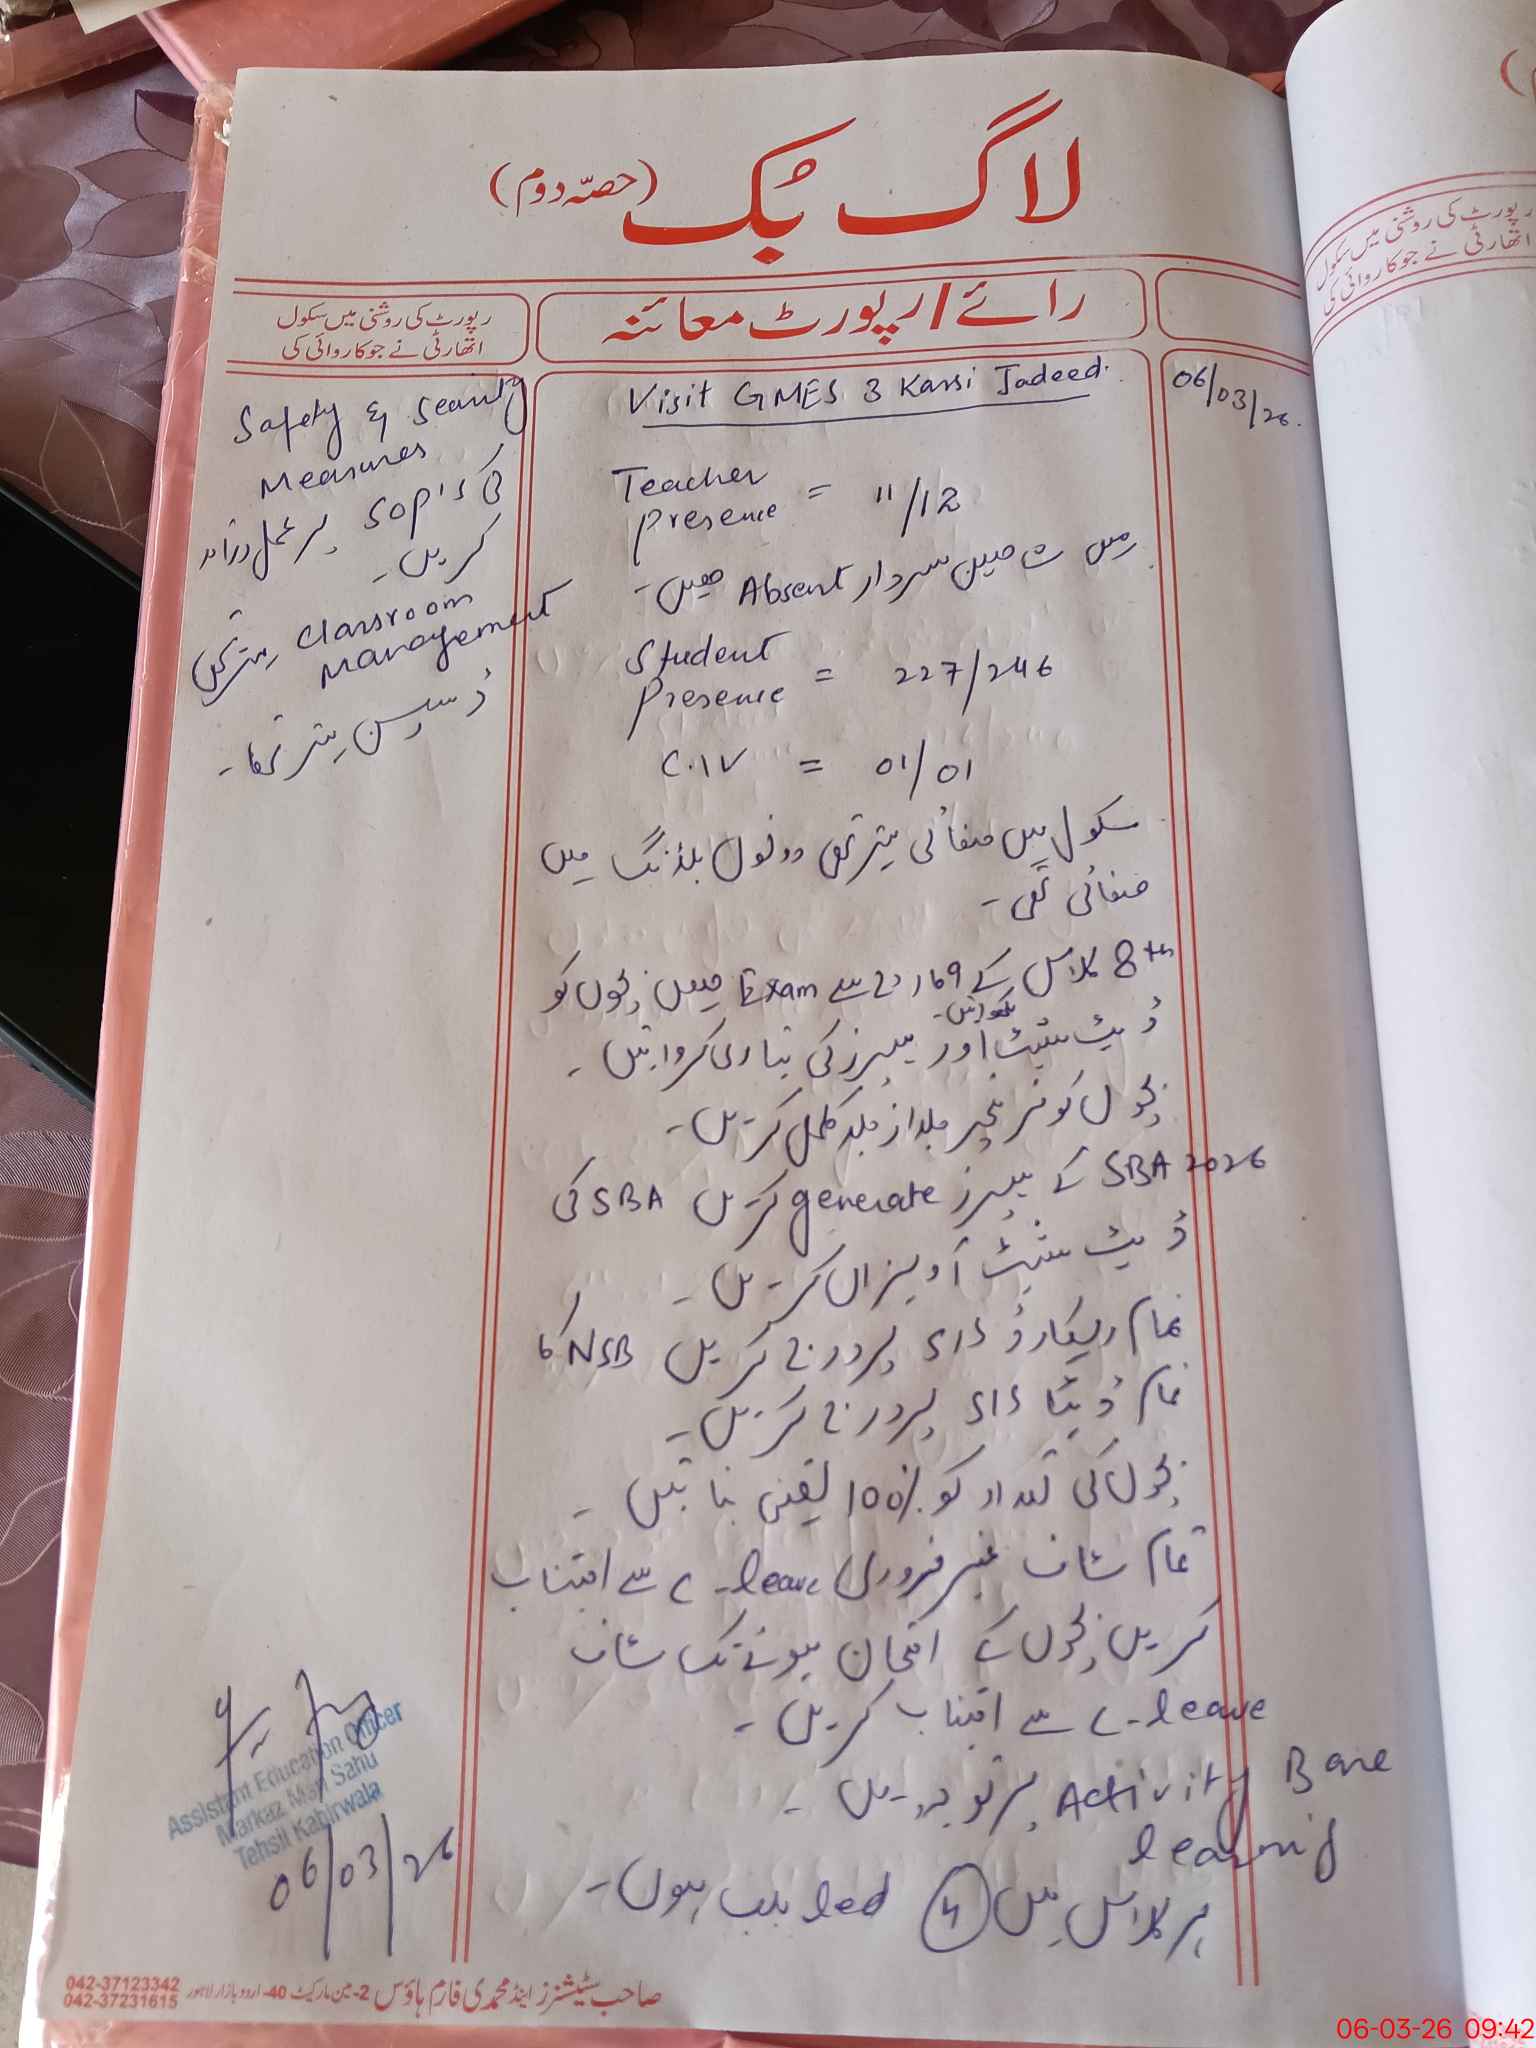 لاگ بک (حصّہ دوم)
رائے / رپورٹ معائنہ
رپورٹ کی روشنی میں سکول
اتھارٹی نے جو کاروائی کی
06/03/26.
Visit GMES 3 Kassi Jadeed.
Teacher
Presence = 11/12
مس شاھین سردار Absent ھیں۔
Student
Presence = 227/246
C.IV = 01/01
سکول میں صفائی بہتر تھی دونوں بلڈنگ میں
صفائی تھی۔
8th کلاس کے 09 مارچ سے Exam ھیں بچوں کو
ڈیٹ شیٹ لکھوائیں۔ اور پیپرز کی تیاری کروائیں۔
بچوں کو فرنیچر جلد از جلد مکمل کریں۔
SBA 2026 کے پیپرز generate کریں SBA کی
ڈیٹ شیٹ آویزاں کریں۔
تمام ریکارڈ SIS پر درج کریں NSB کا
تمام ڈیٹا SIS پر درج کریں۔
بچوں کی تعداد کو 100% یقینی بنائیں۔
تمام سٹاف غیر ضروری C-leave سے اجتناب
کریں بچوں کے امتحان ہونے تک سٹاف
C-leave سے اجتناب کریں۔
Activity Bare
learning پر توجہ دیں۔
ہر کلاس میں 4 led بلب ہوں۔
Safety & Security
Measures
کی SOP's پر عمل درآمد
کریں۔
Classroom بہتر کریں
Management
ڈسپلن بہتر تھا۔
Assistant Education Officer
Markaz Mari Sahu
Tehsil Kabirwala
06/03/26
صاحب سٹیشنرز اینڈ محمدی فارم ہاؤس 2-مین مارکیٹ 40-اردو بازار لاہور
042-37123342
042-37231615
رپورٹ کی روشنی میں سکول
اتھارٹی نے جو کاروائی کی
06-03-26 09:42